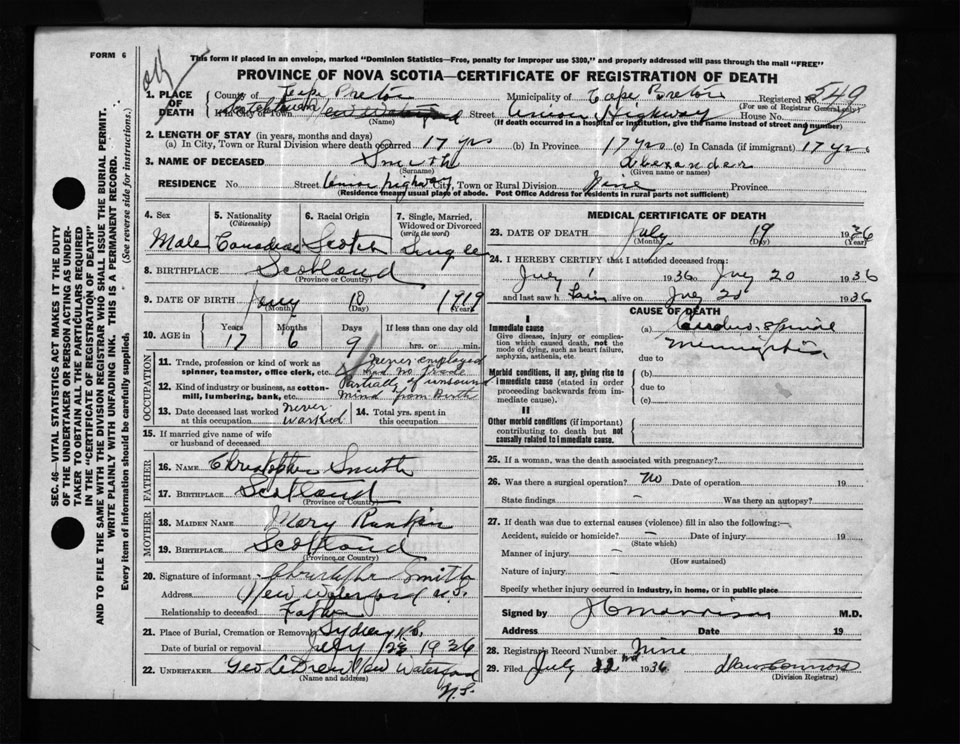 FORM 6
This form if placed in an envelope, marked "Dominion Statistics—Free, penalty for improper use $300," and properly addressed will pass through the mail "FREE"
PROVINCE OF NOVA SCOTIA—CERTIFICATE OF REGISTRATION OF DEATH
1. PLACE OF DEATH
County of Cape Breton Municipality of Cape Breton Registered No. 549
(For use of Registrar General only)
If in City or Town New Waterford Street Union Highway House No.
(Name) (If death occurred in a hospital or institution, give the name instead of street and number)
2. LENGTH OF STAY (in years, months and days)
(a) In City, Town or Rural Division where death occurred 17 yrs (b) In Province 17 yrs (c) In Canada (if immigrant) 17 yrs
3. NAME OF DECEASED Smith Alexander
(Surname) (Given name or names)
RESIDENCE No. Street Union highway City, Town or Rural Division Nine Province
(Residence means usual place of abode. Post Office Address for residents in rural parts not sufficient)
4. Sex
Male
5. Nationality
(Citizenship)
Canadian
6. Racial Origin
Scotch
7. Single, Married, Widowed or Divorced
(write the word)
Single
8. BIRTHPLACE Scotland
(Province or Country)
9. DATE OF BIRTH 10 1919
(Month) (Day) (Year)
10. AGE in
Years Months Days If less than one day old
17 6 9 hrs. or min.
OCCUPATION
11. Trade, profession or kind of work as spinner, teamster, office clerk, etc. never employed had no trade
12. Kind of industry or business, as cotton-mill, lumbering, bank, etc. Partially of unsound mind from Birth
13. Date deceased last worked at this occupation never worked
14. Total yrs. spent in this occupation
15. If married give name of wife or husband of deceased
FATHER
16. NAME Christopher Smith
17. BIRTHPLACE Scotland
(Province or Country)
MOTHER
18. MAIDEN NAME Mary Rankin
19. BIRTHPLACE Scotland
(Province or Country)
20. Signature of informant Christopher Smith
Address New Waterford N.S.
Relationship to deceased Father
21. Place of Burial, Cremation or Removal Sydney N.S.
Date of burial or removal July 22 1936
22. UNDERTAKER Geo New Waterford
(Name and address) N.S.
MEDICAL CERTIFICATE OF DEATH
23. DATE OF DEATH July 19 1936
(Month) (Day) (Year)
24. I HEREBY CERTIFY that I attended deceased from:
July 1 1936 to July 20 1936
and last saw h him alive on July 20 1936
CAUSE OF DEATH
I
Immediate cause
Give disease, injury or complication which caused death, not the mode of dying, such as heart failure, asphyxia, asthenia, etc.
(a) Cerebro Spinal
Meningitis
due to
Morbid conditions, if any, giving rise to immediate cause (stated in order proceeding backwards from immediate cause).
(b)
due to
(c)
II
Other morbid conditions (if important) contributing to death but not causally related to immediate cause.
25. If a woman, was the death associated with pregnancy?
26. Was there a surgical operation? No Date of operation 19
State findings - Was there an autopsy?
27. If death was due to external causes (violence) fill in also the following:—
Accident, suicide or homicide? - Date of injury 19
(State which)
Manner of injury -
(How sustained)
Nature of injury -
Specify whether injury occurred in industry, in home, or in public place
Signed by J C Morrison M.D.
Address Date 19
28. Registrars Record Number Nine
29. Filed July 22nd 1936
(Division Registrar)
SEC. 46—VITAL STATISTICS ACT MAKES IT THE DUTY OF THE UNDERTAKER OR PERSON ACTING AS UNDERTAKER TO OBTAIN ALL THE PARTICULARS REQUIRED IN THE "CERTIFICATE OF REGISTRATION OF DEATH" AND TO FILE THE SAME WITH THE DIVISION REGISTRAR WHO SHALL ISSUE THE BURIAL PERMIT.
WRITE PLAINLY WITH UNFADING INK. THIS IS A PERMANENT RECORD.
Every item of information should be carefully supplied. (See reverse side for instructions.)